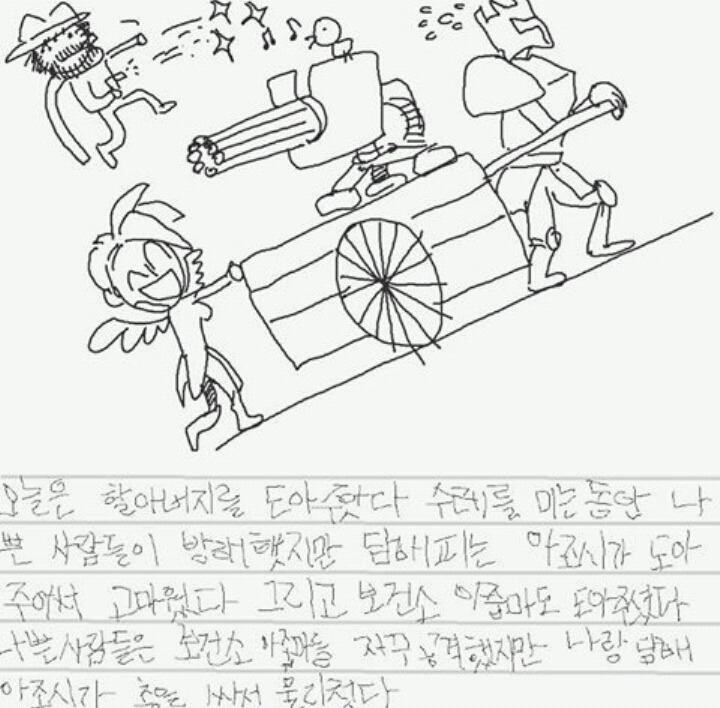 오늘은 할아버지를 도아주햇다 수레를 미는동안 나
쁜 사람들이 방래햇지만 담배피는 아죠시가 도아
주어서 고마웠다 그리고 보건소 아줍마도 도아주셨다
나쁜사람들은 보건소 아줍마를 자꾸 공격했지만 나랑 담배
아죠시가 총을 쏴서 물리첫다